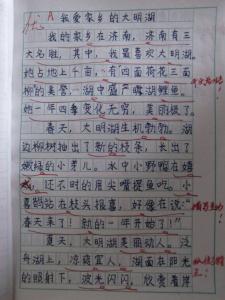 优 A
我爱家乡的大明湖
我的家乡在济南，济南有三
大名胜，其中，我最喜欢大明湖。
她占地上千亩，有四面荷花三面
柳的美誉，湖中盛产露湖鲤鱼。
她一年四季变化无穷，美丽极了。
春天，大明湖生机勃勃。湖
边柳树抽出了新的枝条，长出了
嫩绿的小芽儿。水中小野鸭在嬉
戏，还不时的用尖嘴捉鱼吃。小
喜鹊站在枝头报喜，好像在说：“
春天来了！新的一年开始了！”
夏天，大明湖美丽动人。泛
舟湖上，凉爽宜人，湖面在阳光
的照射下，波光闪闪，欣赏着岸